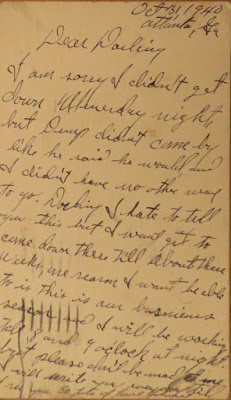 Oct 31 1940
Atlanta, Ga
Dear Darling
I am sorry I didn't get
down Wednesday night
but didn't came by
like he said he would and
I didn't have no other way
to go. Darling I hate to tell
you this but I want get to
come down there till about three
weeks, one reason I want be able
to is this is our busniess
season and I will be working
till 8 and 9 o'clock at night
but please don't be mad
I will write you